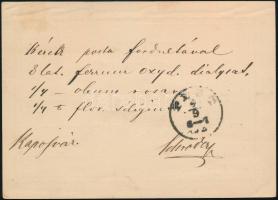 Kérek posta fordultával
3 lat. ferrum oxyd. dialysat.
1/4 — oleum rosar
1/4 t flor. siligin
Kaposvár.